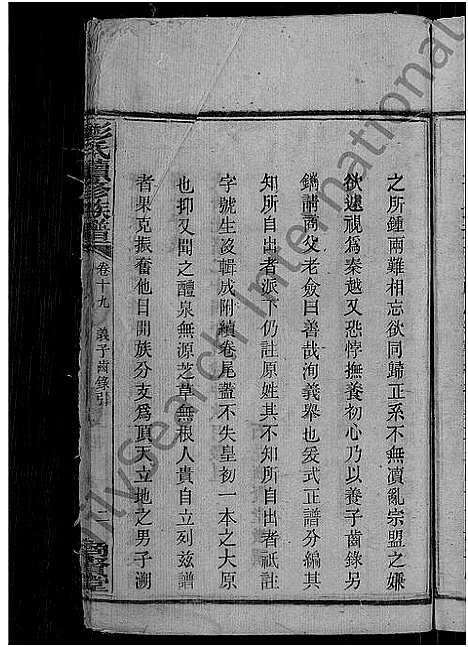 之所鍾兩難相忘欲同歸正系不無瀆亂宗盟之嫌
欲遽視爲秦越又恐悖撫養初心乃以養子齒錄另
鐫請商父老僉曰善哉洵義舉也爰式正譜分編其
知所自出者派下仍註原姓其不知所自出者祇註
字號生沒輯成附續卷尾蓋不失皇初一本之大原
也抑又聞之醴泉無源芝草無根人貴自立列兹譜
者果克振奮他目開族分支爲頂天立地之男子溯
彭氏續修族譜 卷十九 義子齒錄引
FamilySearch International